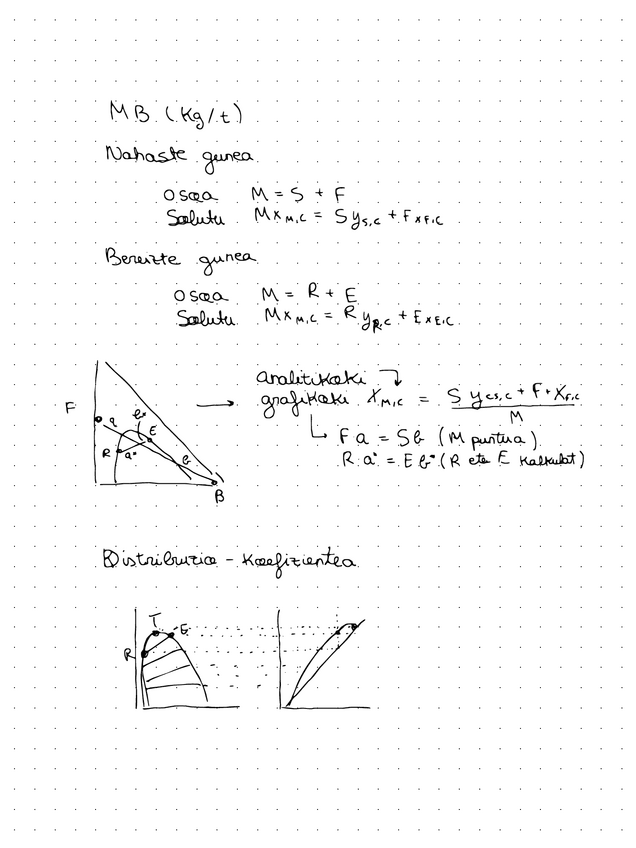 MB (kg/t)
Nahaste gunea
Osoa M = S + F
Solutu M x M,C = S y S,C + F x F,C
Bereizte gunea
Osoa M = R + E
Solutu M x M,C = R y R,C + E x E,C
analitikoki
grafikoki X M,C = S y CS,C + F · X F,C / M
F a = S b (M puntua)
R a* = E b* (R eta E kalkulat)
F
a
b*
E
R
a*
b
B
Distribuzio - koefizientea
T
E
R